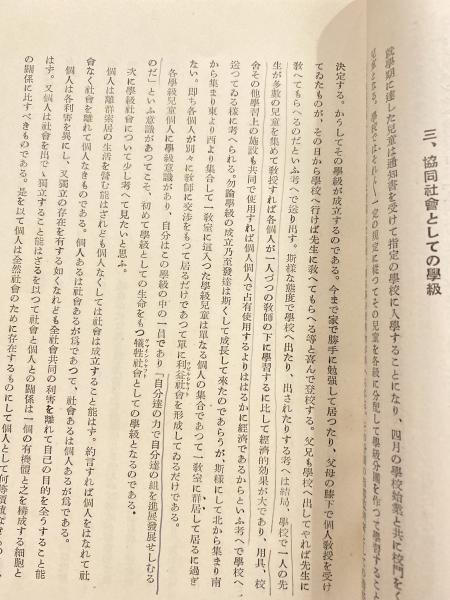 三、協同社會としての學級
就學期に達した兒童は通知書を受けて指定の學校に入學することになり、四月の學校始業と共に校門をく
一定の規定に從つてその兒童を各級に分配して學級分團を作つて學習すること
決定する。かうしてその學級が成立するのである。今まで家で勝手に勉強して居つたり、父母の膝下で個人教授を受け
てゐたものが、その日から學校へ行けば先生に教へてもらへる等と喜んで登校する。父兄も學校へ出してやれば先生に
教へてもらへるのだといふ考へで送り出す。斯様な態度で學校へ出たり、出されたりする考へは結局、學校で一人の先
生が多數の兒童を集めて教授すれば各個人が一人づつの教師の下に學習するに比して經濟的効果が大であり、用具、校
舍その他學習上の施設も共同で使用すれば個人個人で占有使用するよりははるかに經濟であるからといふ考へで學校へ
送つてゐる様に考へられる。勿論學級の成立乃至發達は斯くして成長して來たのであらうが、斯様にして北から集まり南
から集まり東より西より集合して一教室に這入つた學級兒童は單なる個人の集合であつて一教室に群居して居るに過ぎ
ない。即ち各個人が別々に教師に交渉をもつて居るだけであつて單に利益社會を形成してゐるだけである。
各學級兒童個人に學級意識があり、自分はこの學級の中の一員であり「自分達の力で自分達の組を進展發展せしむる
のだ」といふ意識があつてこそ、初めて學級としての生命をもつ犠牲社會としての學級となるのである。
次に學級社會について少し考へて見たいと思ふ。
個人は離群索居の生活を營む能はざれども個人なくしては社會は成立すること能はず。約言すれば個人をはなれて社
會なく社會を離れて個人なきものである。個人あるは社會あるが爲であつて、社會あるは個人あるが爲である。
個人は各利害を異にし、又獨立の存在を有する如くなれども全社會共同の利害を離れて自己の目的を全うすること能
はず。又個人は社會を出でゝ獨立すること能はざるを以つて社會と個人との關係は一個の有機體と之を構成する細胞と
の關係に比すべきものである。是を以て個人は全然社會のために存在するものにして個人として何等價値なきもの